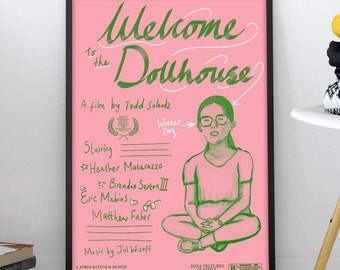 Welcome
to the
Dollhouse
A film by Todd Solondz
Wiener
Dog
Starring
Heather Matarazzo
Brendan Sexton III
Eric Mabius
Matthew Faber
Music by Jill Wisoff